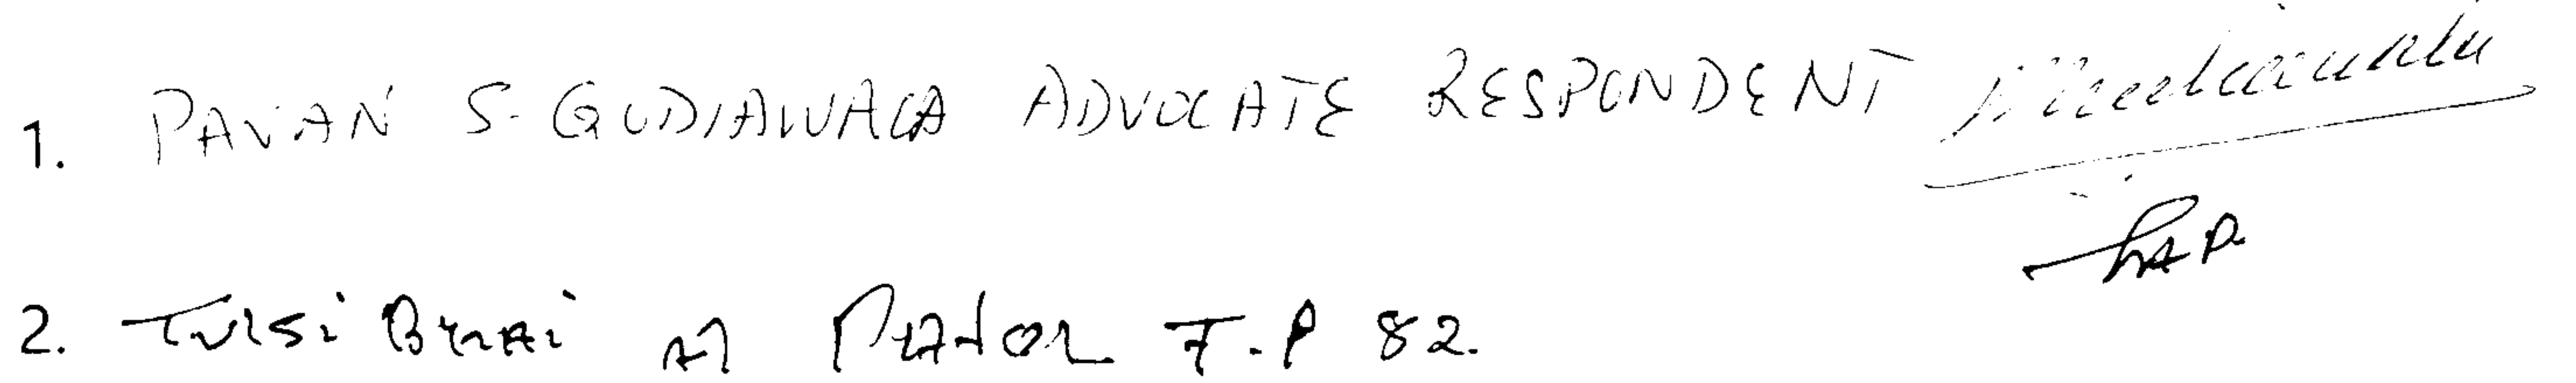 1. PAVAN S. GODIAWALA ADVOCATE RESPONDENT
2. TULSi BHAi M T.P 82.